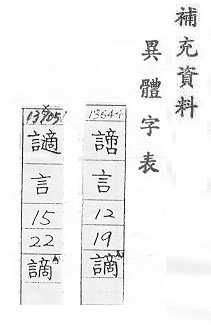 補充資料
異體字表
13644
啻言
12
19
謫
13905
謫
言
15
22
謫